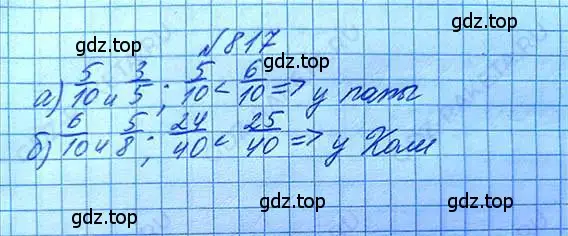 gdz.top
№817
gdz.top gdz.top
а) 5/10 и 3/5 ; 5/10 < 6/10 => у папы
б) 6/10 и 5/8 ; 24/40 < 25/40 => у Коли
gdz.top gdz.top
gdz.top